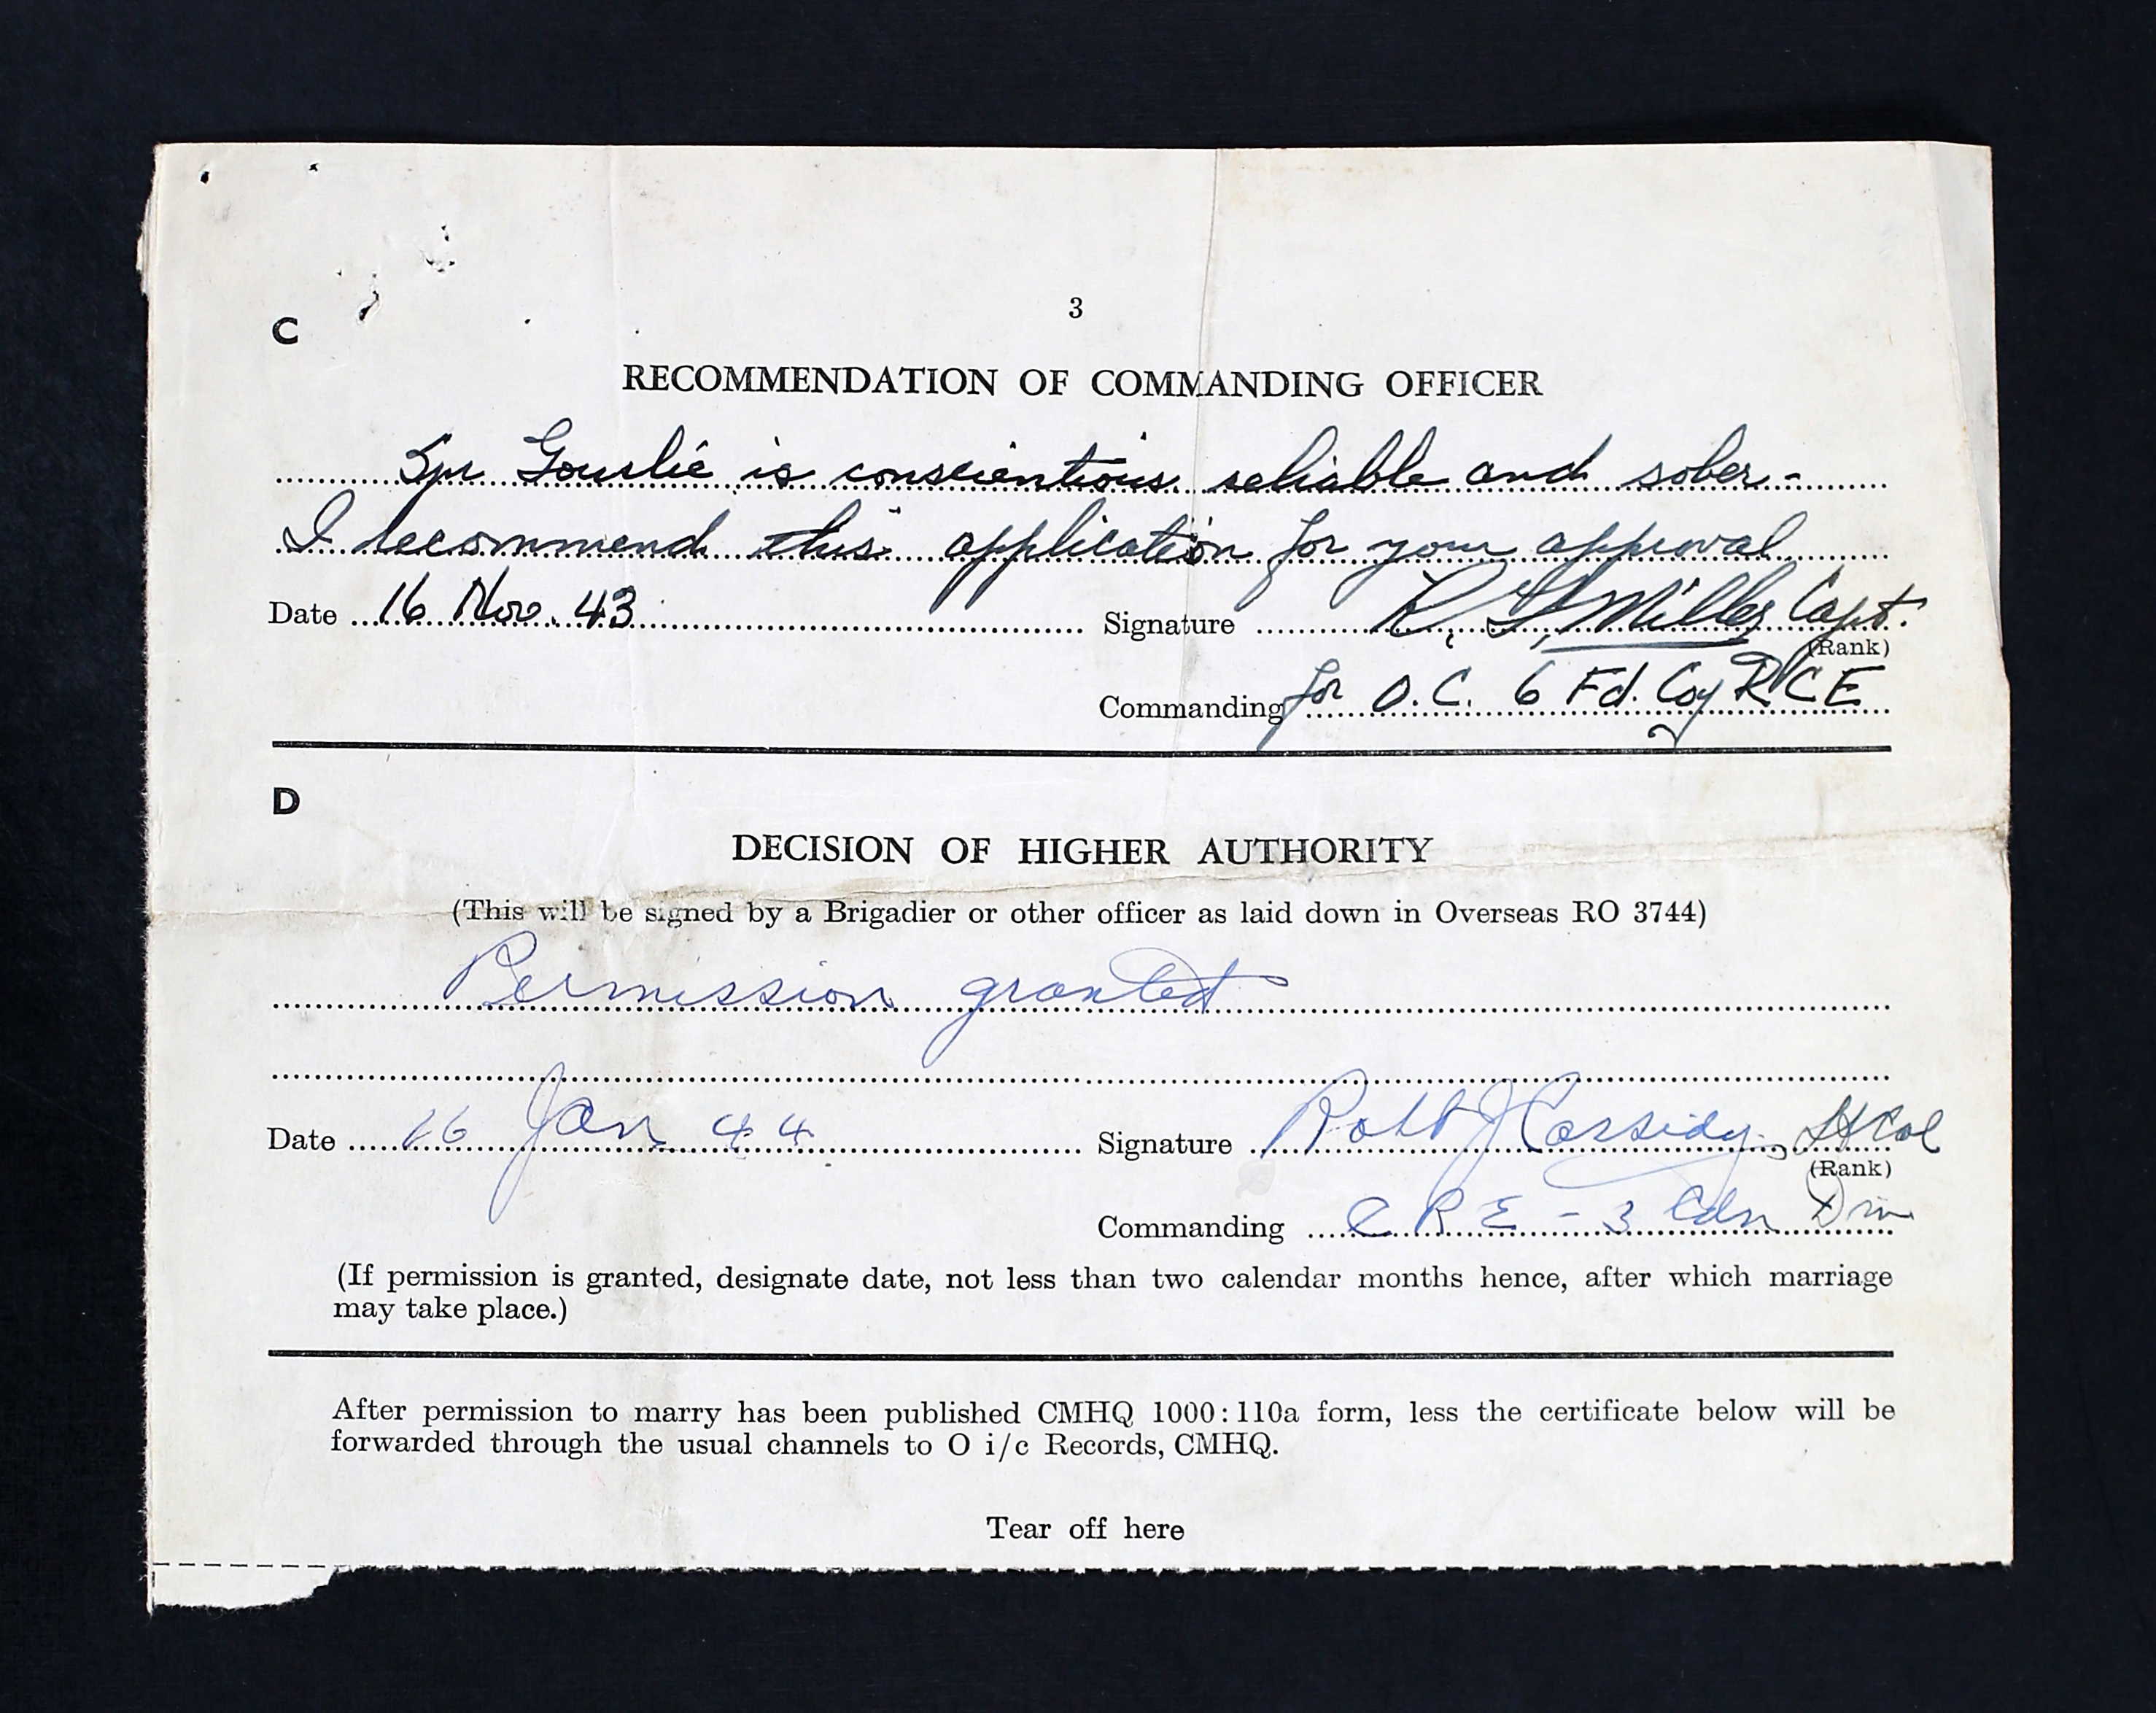 3
C
RECOMMENDATION OF COMMANDING OFFICER
Spr Gourlie is conscientious reliable and sober -
I recommend this application for your approval
Date 16 Nov. 43 Signature R. G. Miller Capt.
(Rank)
Commanding for O.C. 6 Fd. Coy RCE
D
DECISION OF HIGHER AUTHORITY
(This will be signed by a Brigadier or other officer as laid down in Overseas RO 3744)
Permission granted
Date 16 Jan 44 Signature Robt J Cassidy, Lt Col
(Rank)
Commanding C R E - 3 Cdn Div
(If permission is granted, designate date, not less than two calendar months hence, after which marriage
may take place.)
After permission to marry has been published CMHQ 1000:110a form, less the certificate below will be
forwarded through the usual channels to O i/c Records, CMHQ.
Tear off here